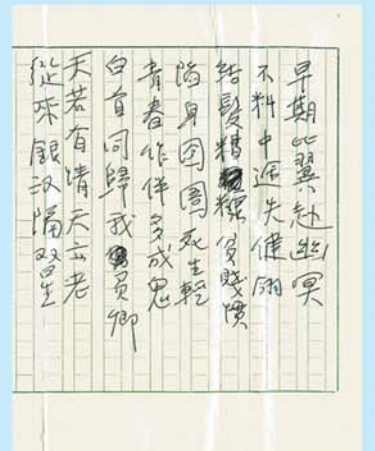 早期比翼赴幽冥
不料中途失健翎
結髮糟糠貧賤慣
陷身囹圄死生輕
青春作伴多成鬼
白首同歸我負卿
天若有情天亦老
從來銀汉隔双星